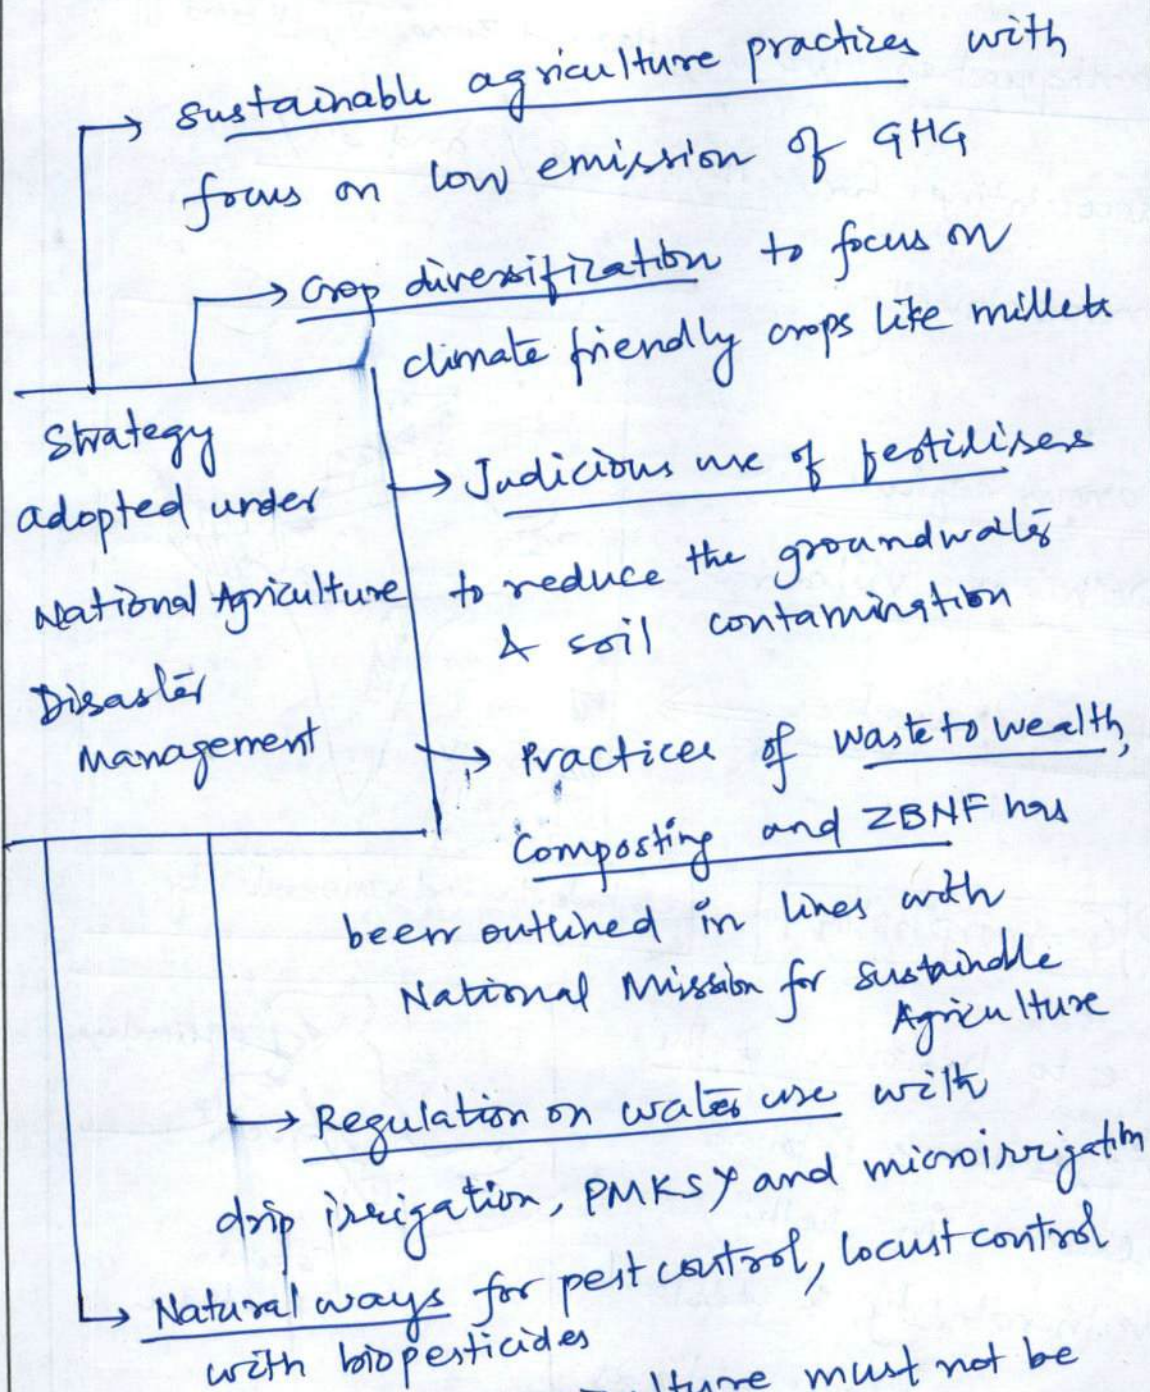 sustainable agriculture practices with
focus on low emission of GHG
Crop diversification to focus on
climate friendly crops like millets
Strategy
adopted under
National Agriculture
Disaster
Management
Judicious use of fertilisers
to reduce the groundwater
& soil contamination
Practices of waste to wealth,
Composting and ZBNF has
been outlined in lines with
National Mission for sustainable
Agriculture
Regulation on water use with
drip irrigation, PMKSY and microirrigation
Natural ways for pest control, locust control
with biopesticides
must not be